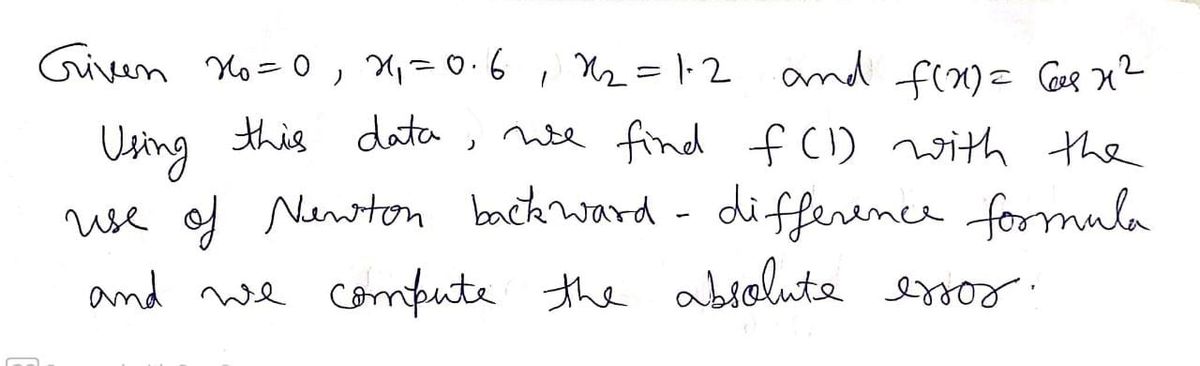 Given x₀ = 0, x₁ = 0.6, x₂ = 1.2 and f(x) = Cos x²
Using this data, we find f(1) with the
use of Newton backward - difference formula
and we compute the absolute error.